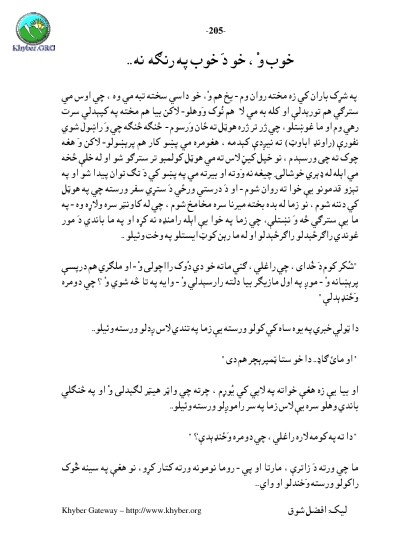 Khyber.ORG
-205-
خوب وْ ، خو دَ خوب په رنګه نه..
په شرک باران کې زه مخته روان وم - يخ هم وْ، خو داسې سخته تبه مې وه ، چې اوس مې
سترګې هم تورېدلې او کله به مې لا هم ټوک وْوهلو - لاکن بيا هم مخته په کيېدلې سرت
رهې وم او ما غوښتلو ، چې زر تر زره هوټل ته ځان وْرسوم - څنګه څنګه چې وْ راښول شوي
نفورې (راونډ اباوټ) ته نيږدې کېدمه ، هغومره مې پښو کار هم پرېښولو - لاکن وَ هغه
چوک ته چې ورسېدم ، نو خپل کين لاس ته مې هوټل کولمبو تر سترګو شو او له خلې څخه
مې اېله له ډېرې خوشالۍ، چيغه نه وْته او بيرته مې په پښو کې دَ تګ توان پيدا شو او په
تېزو قدمونو يې خوا ته روان شوم - او دَ درستې ورځې دَ سترې سفر ورسته چې په هوټل
کې دننه شوم ، نو زما له بده بخته ميرنا سره مخامخ شوم ، چې له کاونټر سره ولاړه وه - په
ما يې سترګې څه وَ نښتلې، چې زما په خوا يې اېله رامنډه نه کړه او په ما باندې دَ مور
غوندې راګرځېدلو راګرځېدلو او له ما رېن کوټ ايستلو په وخت وئيلو..
"شکر کوم دَ خُداى ، چې راغلې ، ګنې ماته خو دې ډوک رااچولى وْ - او ملګري هم درپسې
پرېښانه وْ - موږ په اول مازيګر بيا دلته رارسېدلي وْ - وايه په تا څه شوي وْ؟ چې دومره
وځنډېدلې"
دا ټولې خبرې په يوه ساه کې کولو ورسته يې زما په تندي لاس ږدلو ورسته وئيلو..
"او مائ ګاډ.. دا خو ستا ټمپرېچر هم دى"
او بيا يې زه هغې خواته په لابي کې بُوړم ، چرته چې واټر هيټر لګېدلى وْ او په څنګلې
باندې وهلو سره يې لاس زما په سر راموږلو ورسته وئيلو..
"دا ته په کومه لاره راغلې ، چې دومره وځنډېدې؟"
ما چې ورته دَ زاترې ، مارتا او پي - روما نومونه ورته کتار کړو ، نو هغې په سينه څوک
راکولو ورسته وْخندلو او واى..
Khyber Gateway – http://www.khyber.org
ليک: افضل شوق